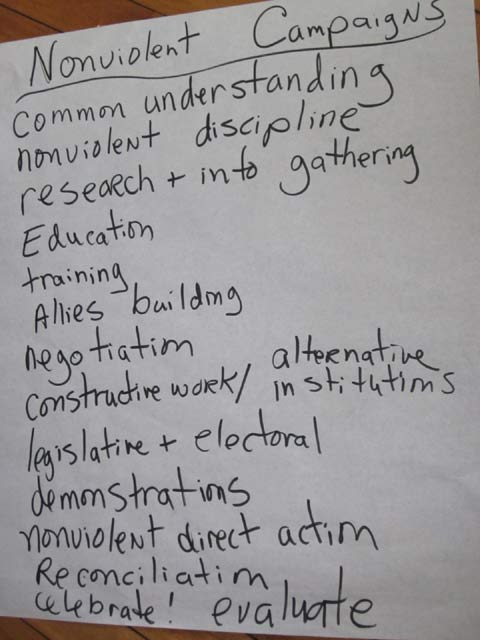 Nonviolent Campaigns
common understanding
nonviolent discipline
research + info gathering
Education
training
Allies building
negotiation
constructive work/ alternative institutions
legislative + electoral
demonstrations
nonviolent direct action
Reconciliation
celebrate! evaluate